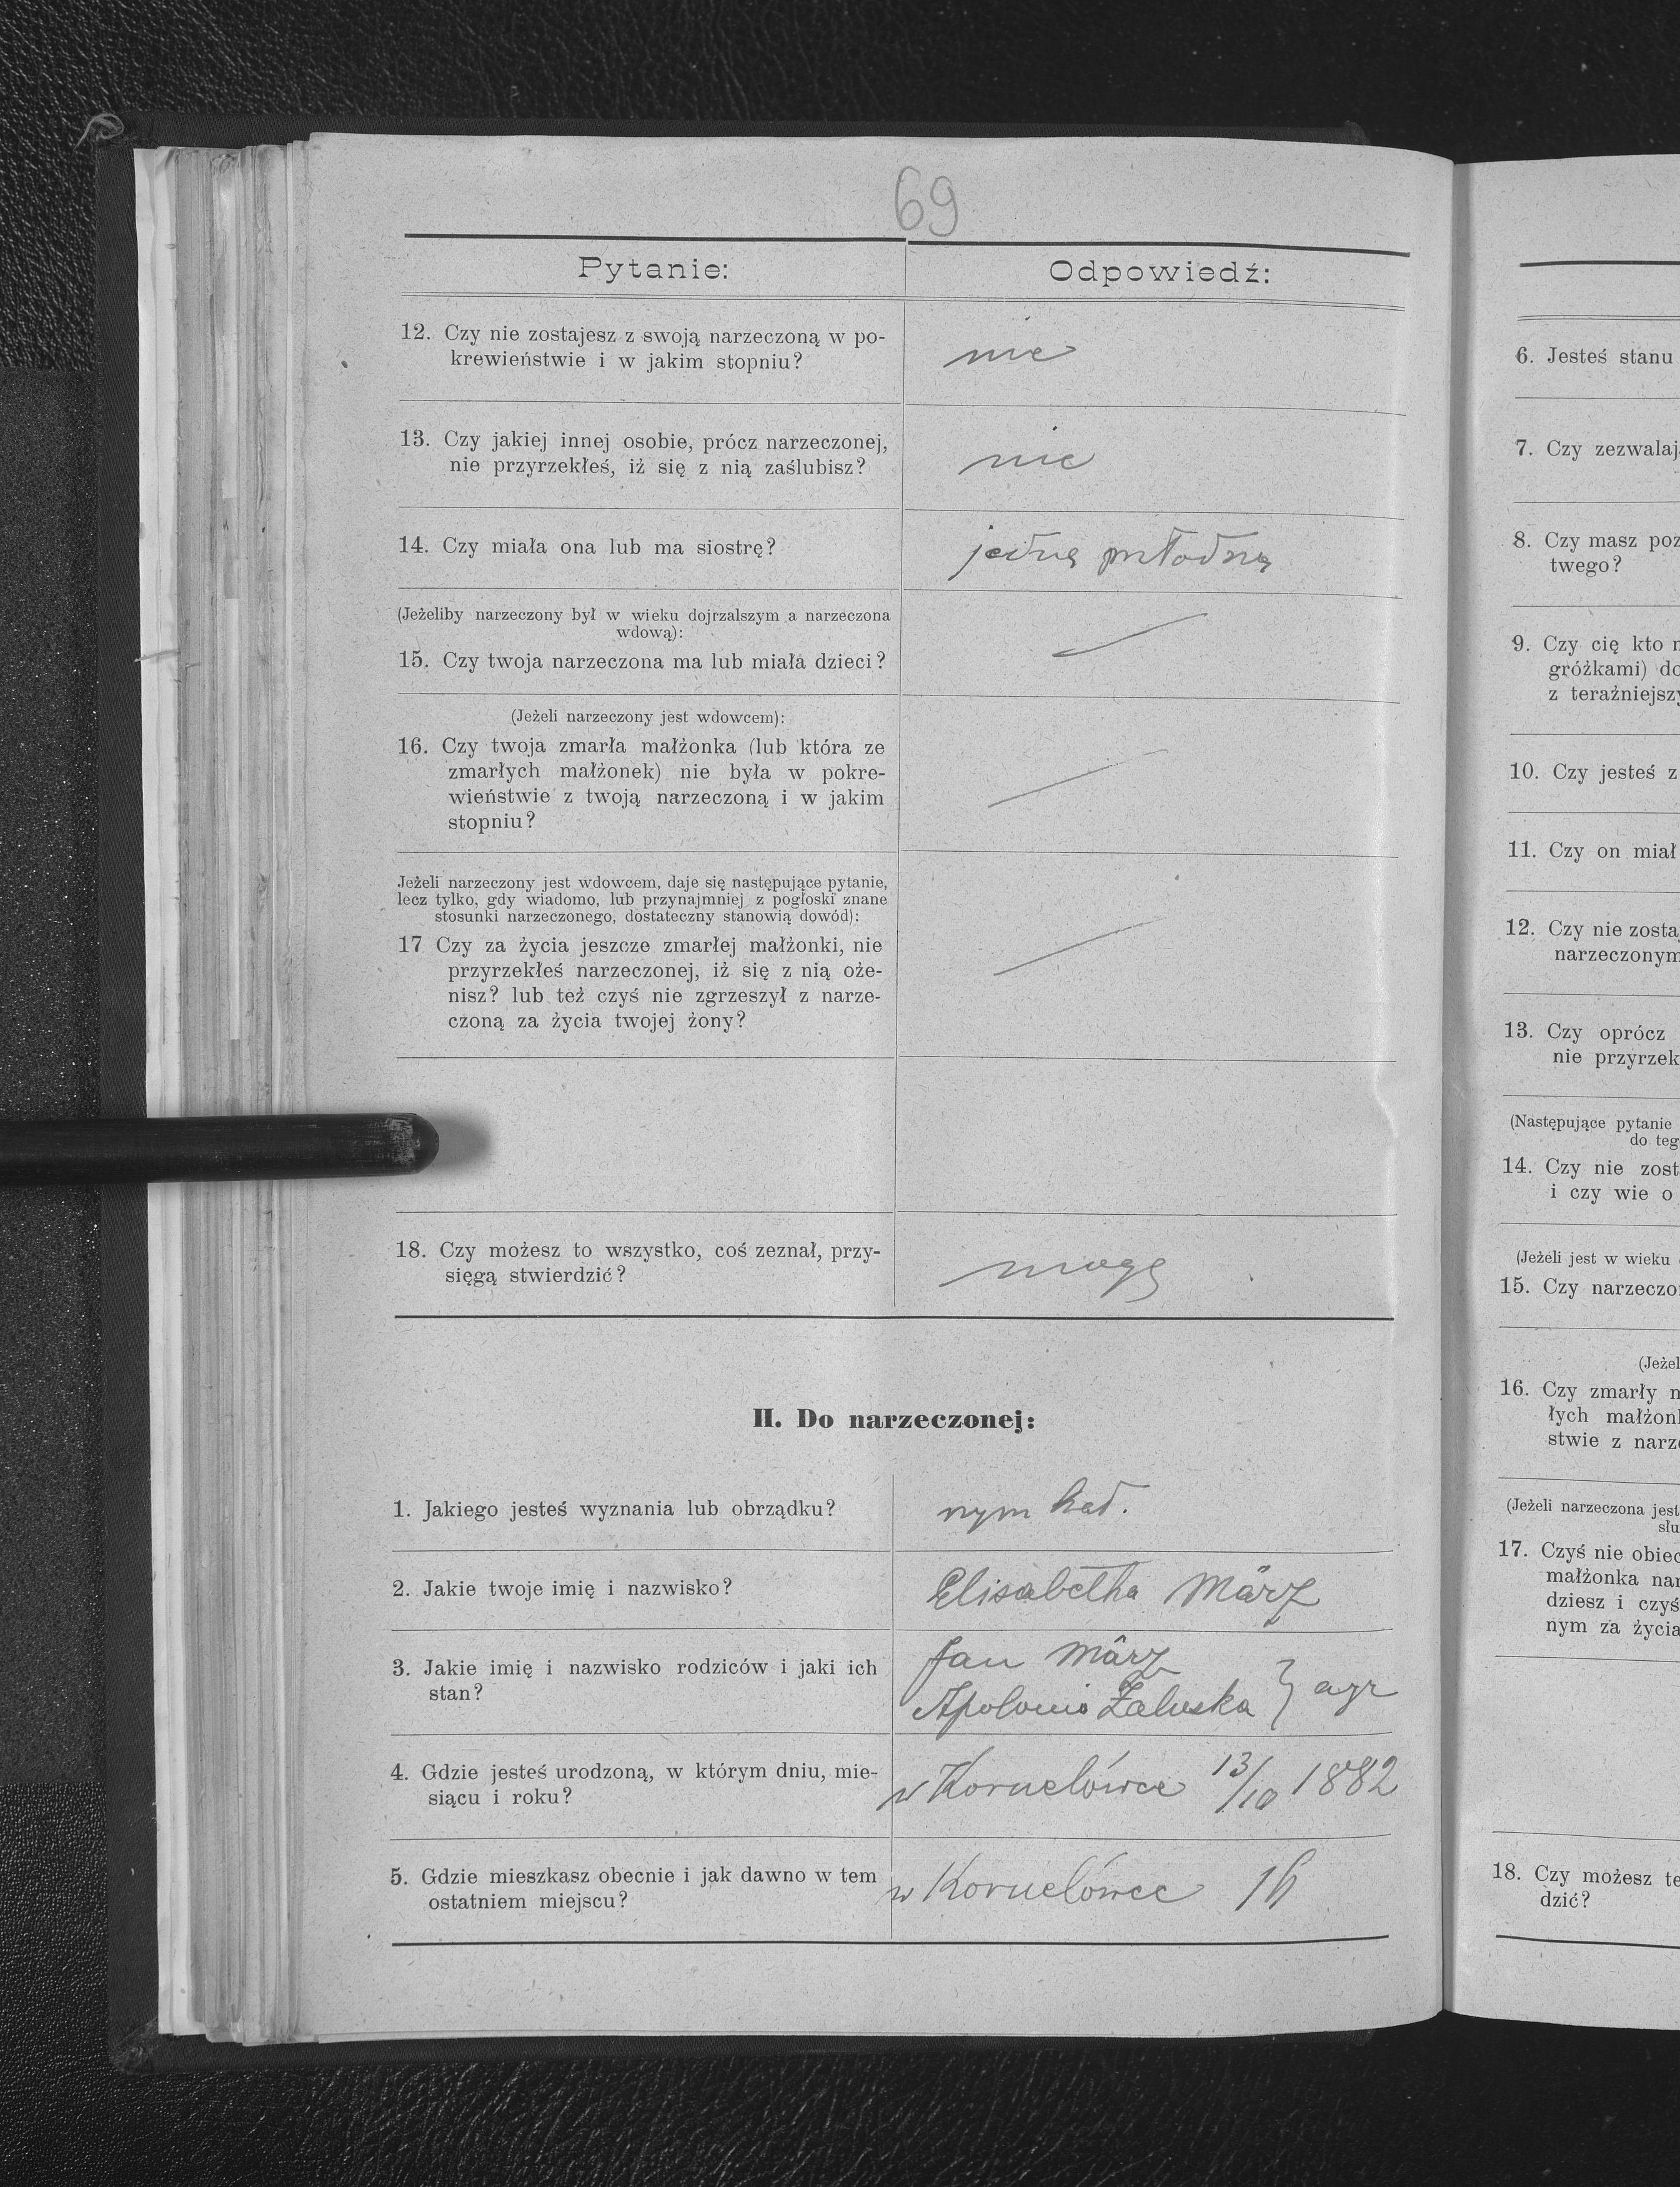 69
Pytanie: Odpowiedź:
12. Czy nie zostajesz z swoją narzeczoną w po-
krewieństwie i w jakim stopniu?
nie
13. Czy jakiej innej osobie, prócz narzeczonej,
nie przyrzekłeś, iż się z nią zaślubisz?
nie
14. Czy miała ona lub ma siostrę?
jedną młodszą
(Jeżeliby narzeczony był w wieku dojrzalszym a narzeczona
wdową):
15. Czy twoja narzeczona ma lub miała dzieci?
(Jeżeli narzeczony jest wdowcem):
16. Czy twoja zmarła małżonka (lub która ze
zmarłych małżonek) nie była w pokre-
wieństwie z twoją narzeczoną i w jakim
stopniu?
Jeżeli narzeczony jest wdowcem, daje się następujące pytanie,
lecz tylko, gdy wiadomo, lub przynajmniej z pogłoski znane
stosunki narzeczonego, dostateczny stanowią dowód):
17 Czy za życia jeszcze zmarłej małżonki, nie
przyrzekłeś narzeczonej, iż się z nią oże-
nisz? lub też czyś nie zgrzeszył z narze-
czoną za życia twojej żony?
18. Czy możesz to wszystko, coś zeznał, przy-
sięgą stwierdzić?
mogę
II. Do narzeczonej:
1. Jakiego jesteś wyznania lub obrządku?
rzym kat.
2. Jakie twoje imię i nazwisko?
Elisabetha März
3. Jakie imię i nazwisko rodziców i jaki ich
stan?
Jan März
Apolonia Załuska } agr
4. Gdzie jesteś urodzoną, w którym dniu, mie-
siącu i roku?
w Kornelówce 13/10 1882
5. Gdzie mieszkasz obecnie i jak dawno w tem
ostatniem miejscu?
w Kornelówce
6. Jesteś stanu
7. Czy zezwalaj
8. Czy masz poz
twego?
9. Czy cię kto
gróżkami) do
z teraźniejszy
10. Czy jesteś z
11. Czy on miał
12. Czy nie zosta
narzeczonym
13. Czy oprócz
nie przyrzek
(Następujące pytanie
do teg
14. Czy nie zost
i czy wie o
(Jeżeli jest w wieku
15. Czy narzeczo
(Jeżel
16. Czy zmarły
łych małżon
stwie z narz
(Jeżeli narzeczona jest
słu
17. Czyś nie obiec
małżonka nar
dziesz i czyś
nym za życia
18. Czy możesz te
dzić?